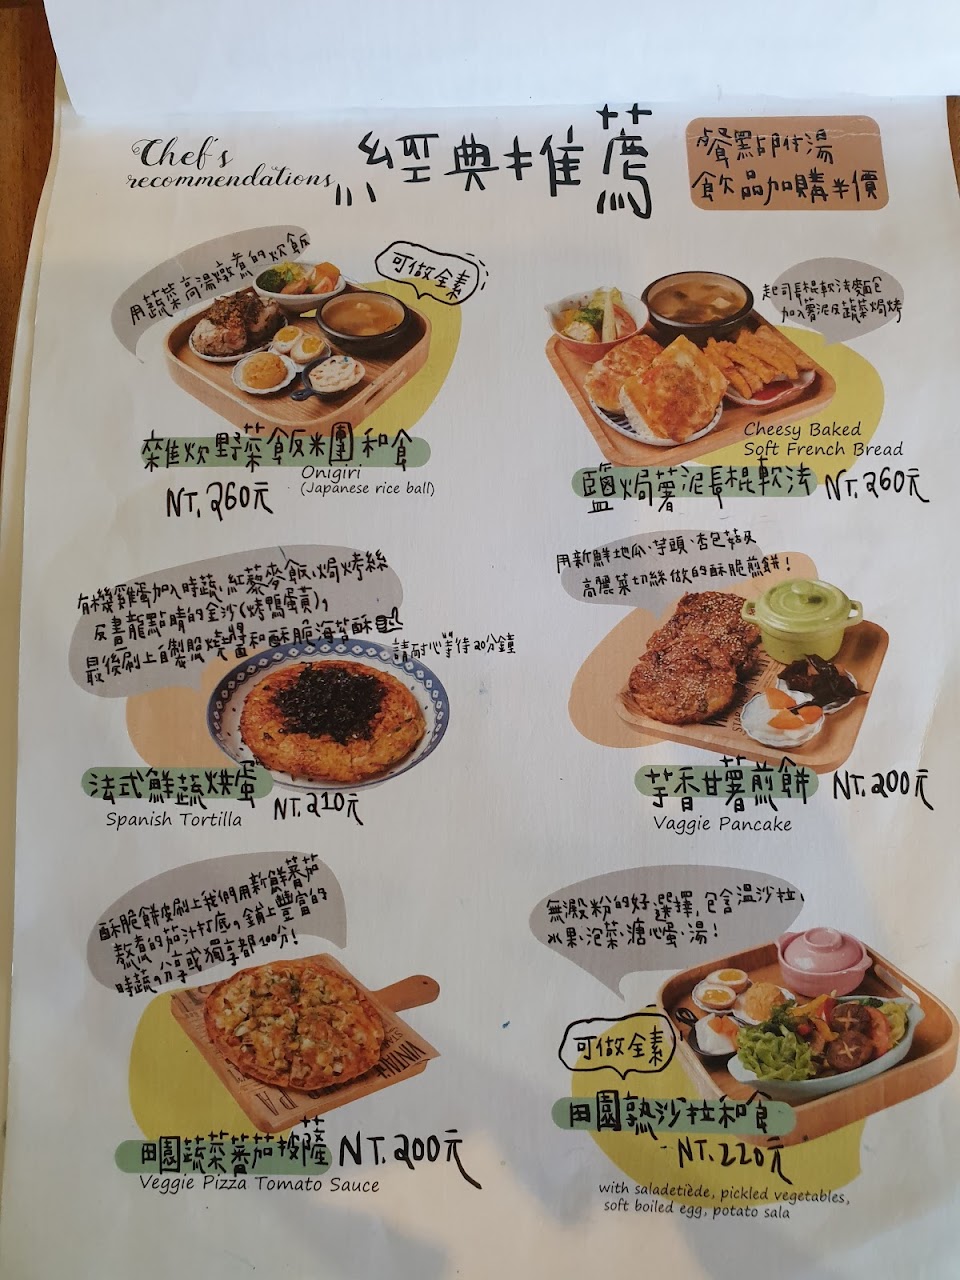 Chef's
recommendations
經典推薦
餐點即附湯
飲品加購半價
用蔬菜高湯燉煮的炊飯
可做全素
雜炊野菜飯米團和食
Onigiri
(Japanese rice ball)
NT.260元
起司長棍軟法麵包
加入薯泥及蔬菜焗烤
Cheesy Baked
Soft French Bread
鹽焗薯泥長棍軟法 NT.260元
有機雞蛋加入時蔬、紅藜麥飯、焗烤絲
及畫龍點睛的金沙(烤鴨蛋黃)。
最後刷上自製照燒醬和酥脆海苔酥
請耐心等待20分鐘
法式鮮蔬烘蛋 NT.210元
Spanish Tortilla
用新鮮地瓜、芋頭、杏包菇及
高麗菜切絲做的酥脆煎餅!
芋香甘薯煎餅 NT.200元
Vaggie Pancake
酥脆餅皮刷上我們用新鮮蕃茄
熬煮的茄汁打底。鋪上豐富的
時蔬。分享或獨享都100分!
田園蔬菜蕃茄披薩 NT.200元
Veggie Pizza Tomato Sauce
無澱粉的好選擇,包含溫沙拉、
水果、泡菜、溏心蛋、湯!
可做全素
田園熟沙拉和食
NT.220元
with saladetiède, pickled vegetables,
soft boiled egg, potato sala